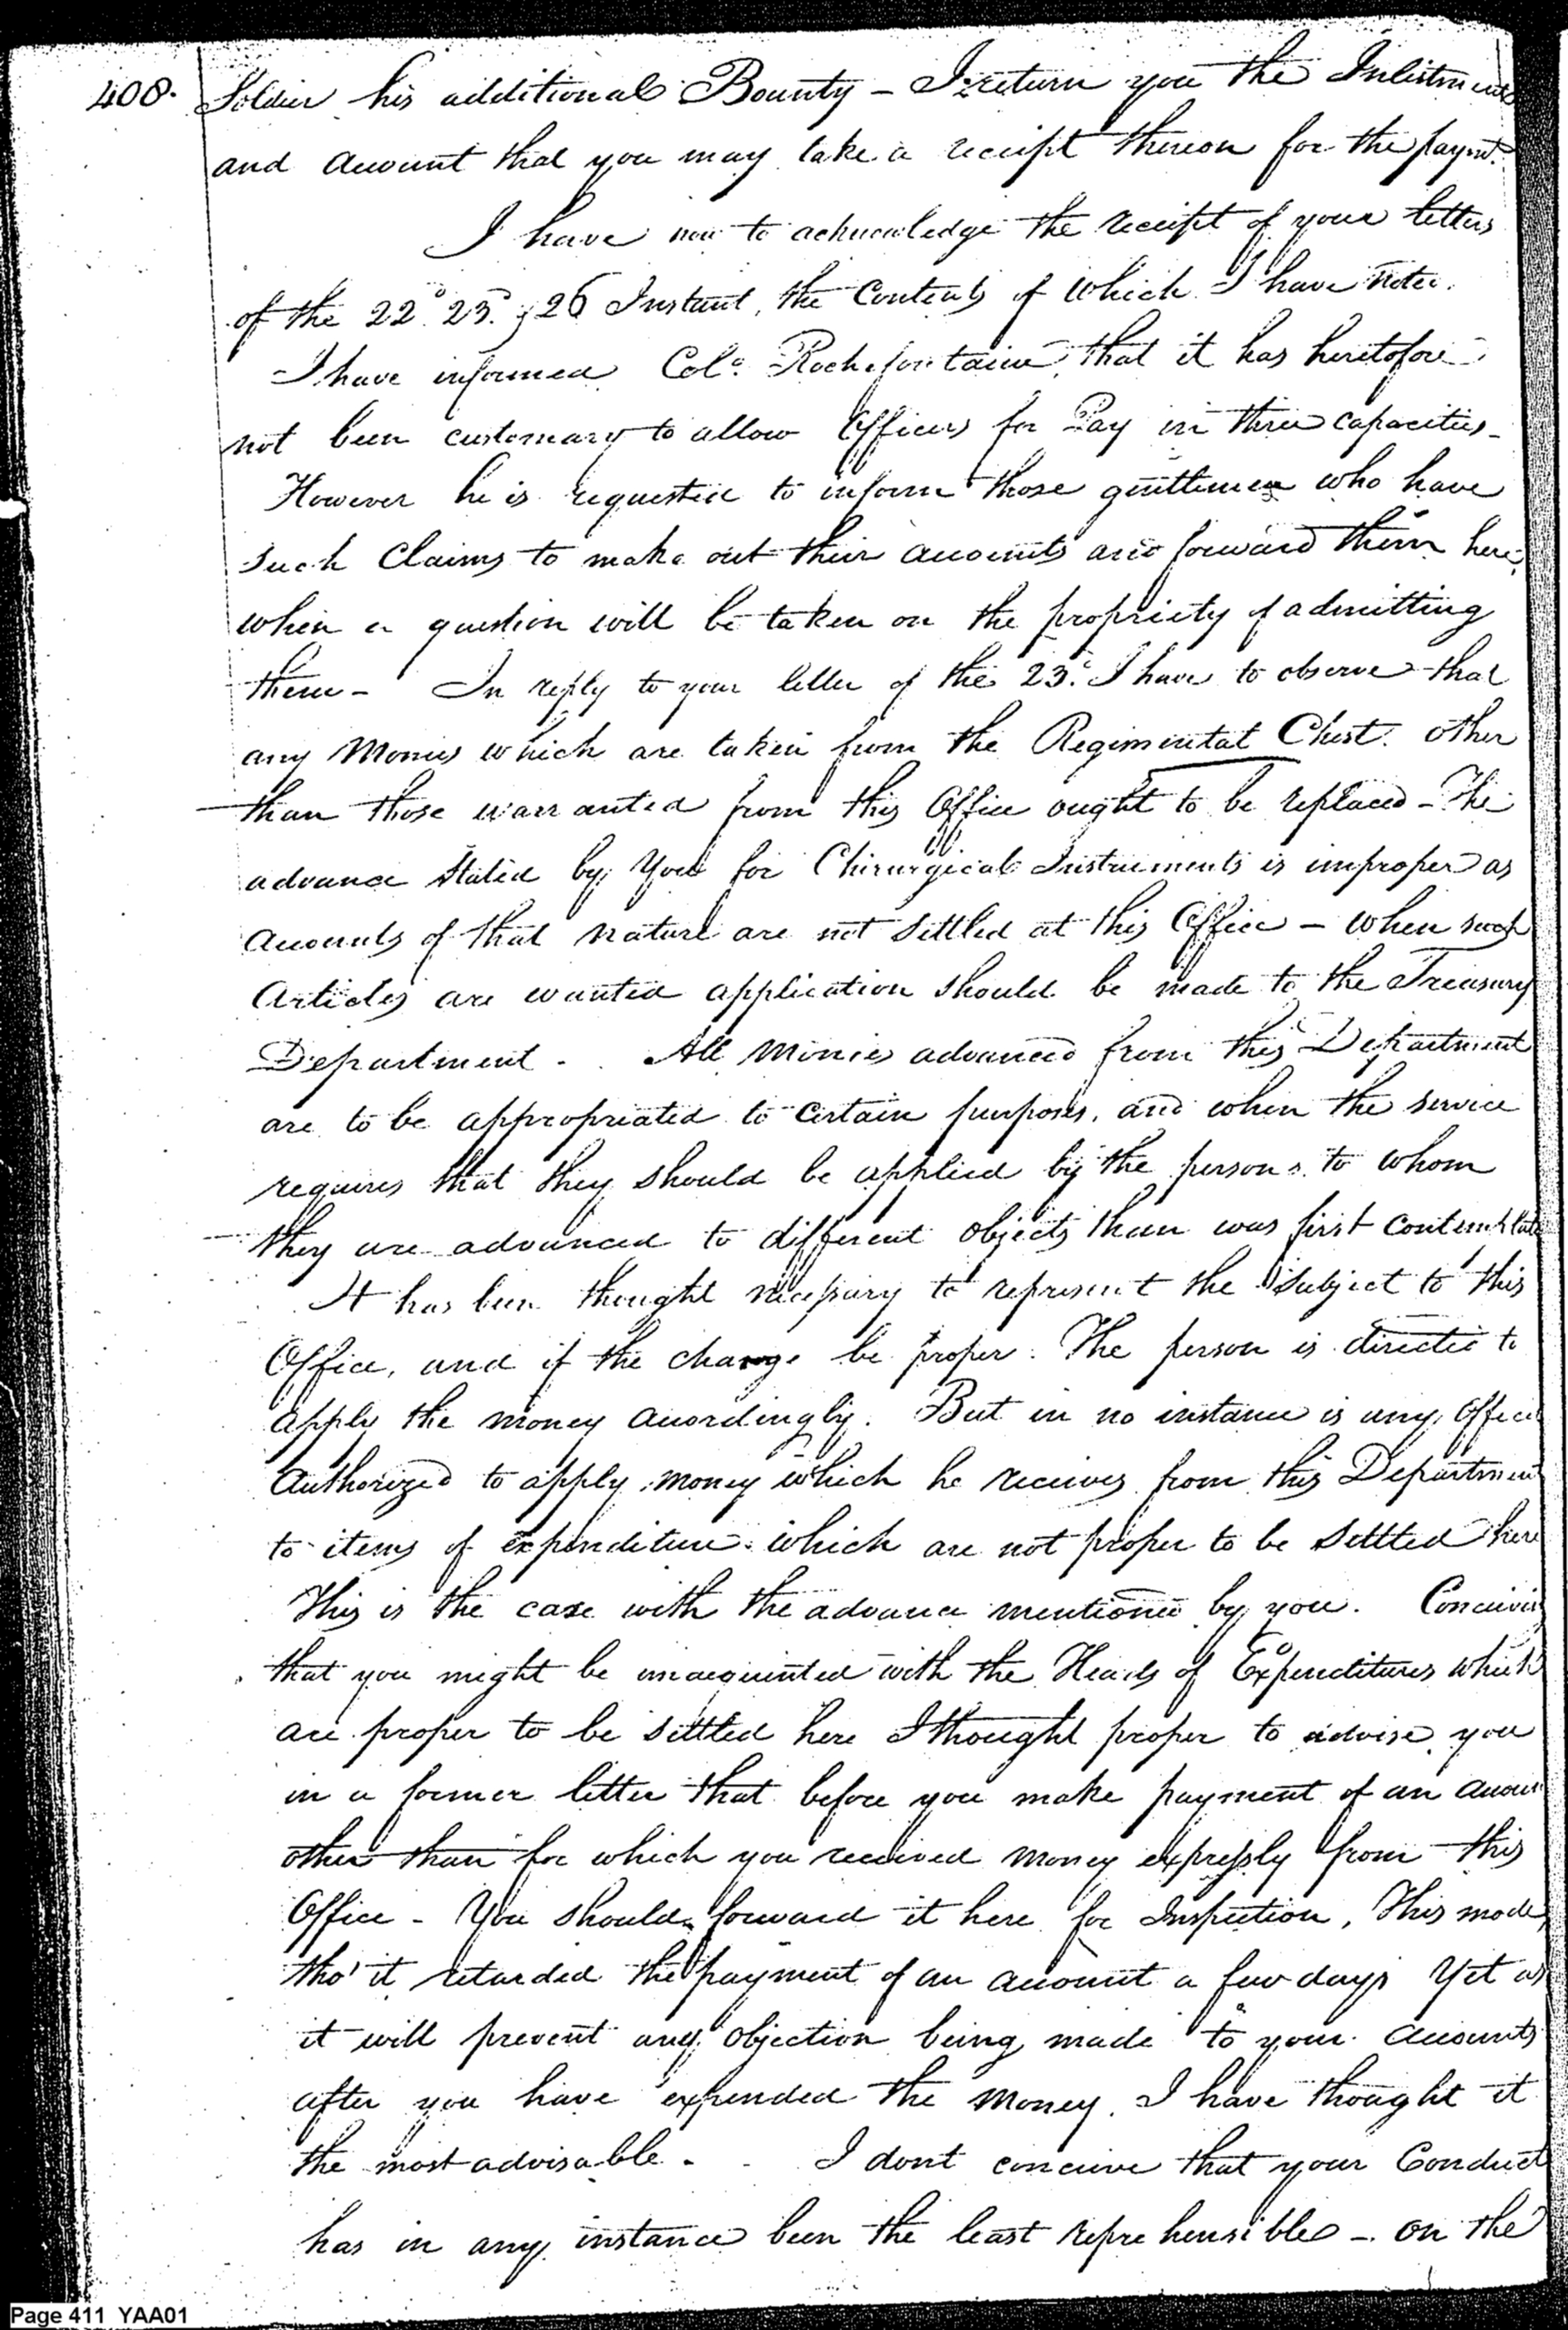 408. Soldier his additional Bounty – I return you the Inlistments
and account that you may take a receipt thereon for the paymt.
I have now to acknowledge the receipt of your letters
of the 22d 23d & 26 Instant, the Contents of which I have noted.
I have informed Colo. Rochefontaine, that it has heretofore
not been customary to allow Officers for Pay in three capacities –
However he is requested to inform those gentlemen who have
such Claims to make out their accounts and forward them here,
when a question will be taken on the propriety of admitting
them – In reply to your letter of the 23d. I have to observe that
any Monies which are taken from the Regimental Chest. other
than those warranted from this Office ought to be replaced – The
advance Stated by You for Chirurgical Instruments is improper as
accounts of that nature are not Settled at this Office – when such
Articles are wanted application should be made to the Treasury
Department . All monies advanced from this Department
are to be appropriated to certain purposes, and when the service
requires that they should be applied by the persons to whom
they are advanced to different objects than was first contemplated
It has been thought necessary to represent the Subject to this
Office, and if the change be proper. The person is directed to
apply the money accordingly. But in no instance is any Officer
Authorized to apply money which he receives from this Department
to items of expenditure which are not proper to be Settled here
This is the case with the advance mentioned by you. Conceiving
that you might be unacquinted with the Heads of Expenditures which
are proper to be Settled here I thought proper to advise you
in a former letter that before you make payment of an account
other than for which you received money expressly from this
Office – You should forward it here for Inspection, This mode,
tho' it retarded the payment of an account a few days Yet as
it will prevent any objection being made to your accounts
after you have expended the Money. I have thought it
the most advisable. I dont conceive that your Conduct
has in any instance been the least reprehensible – on the
Page 411 YAA01